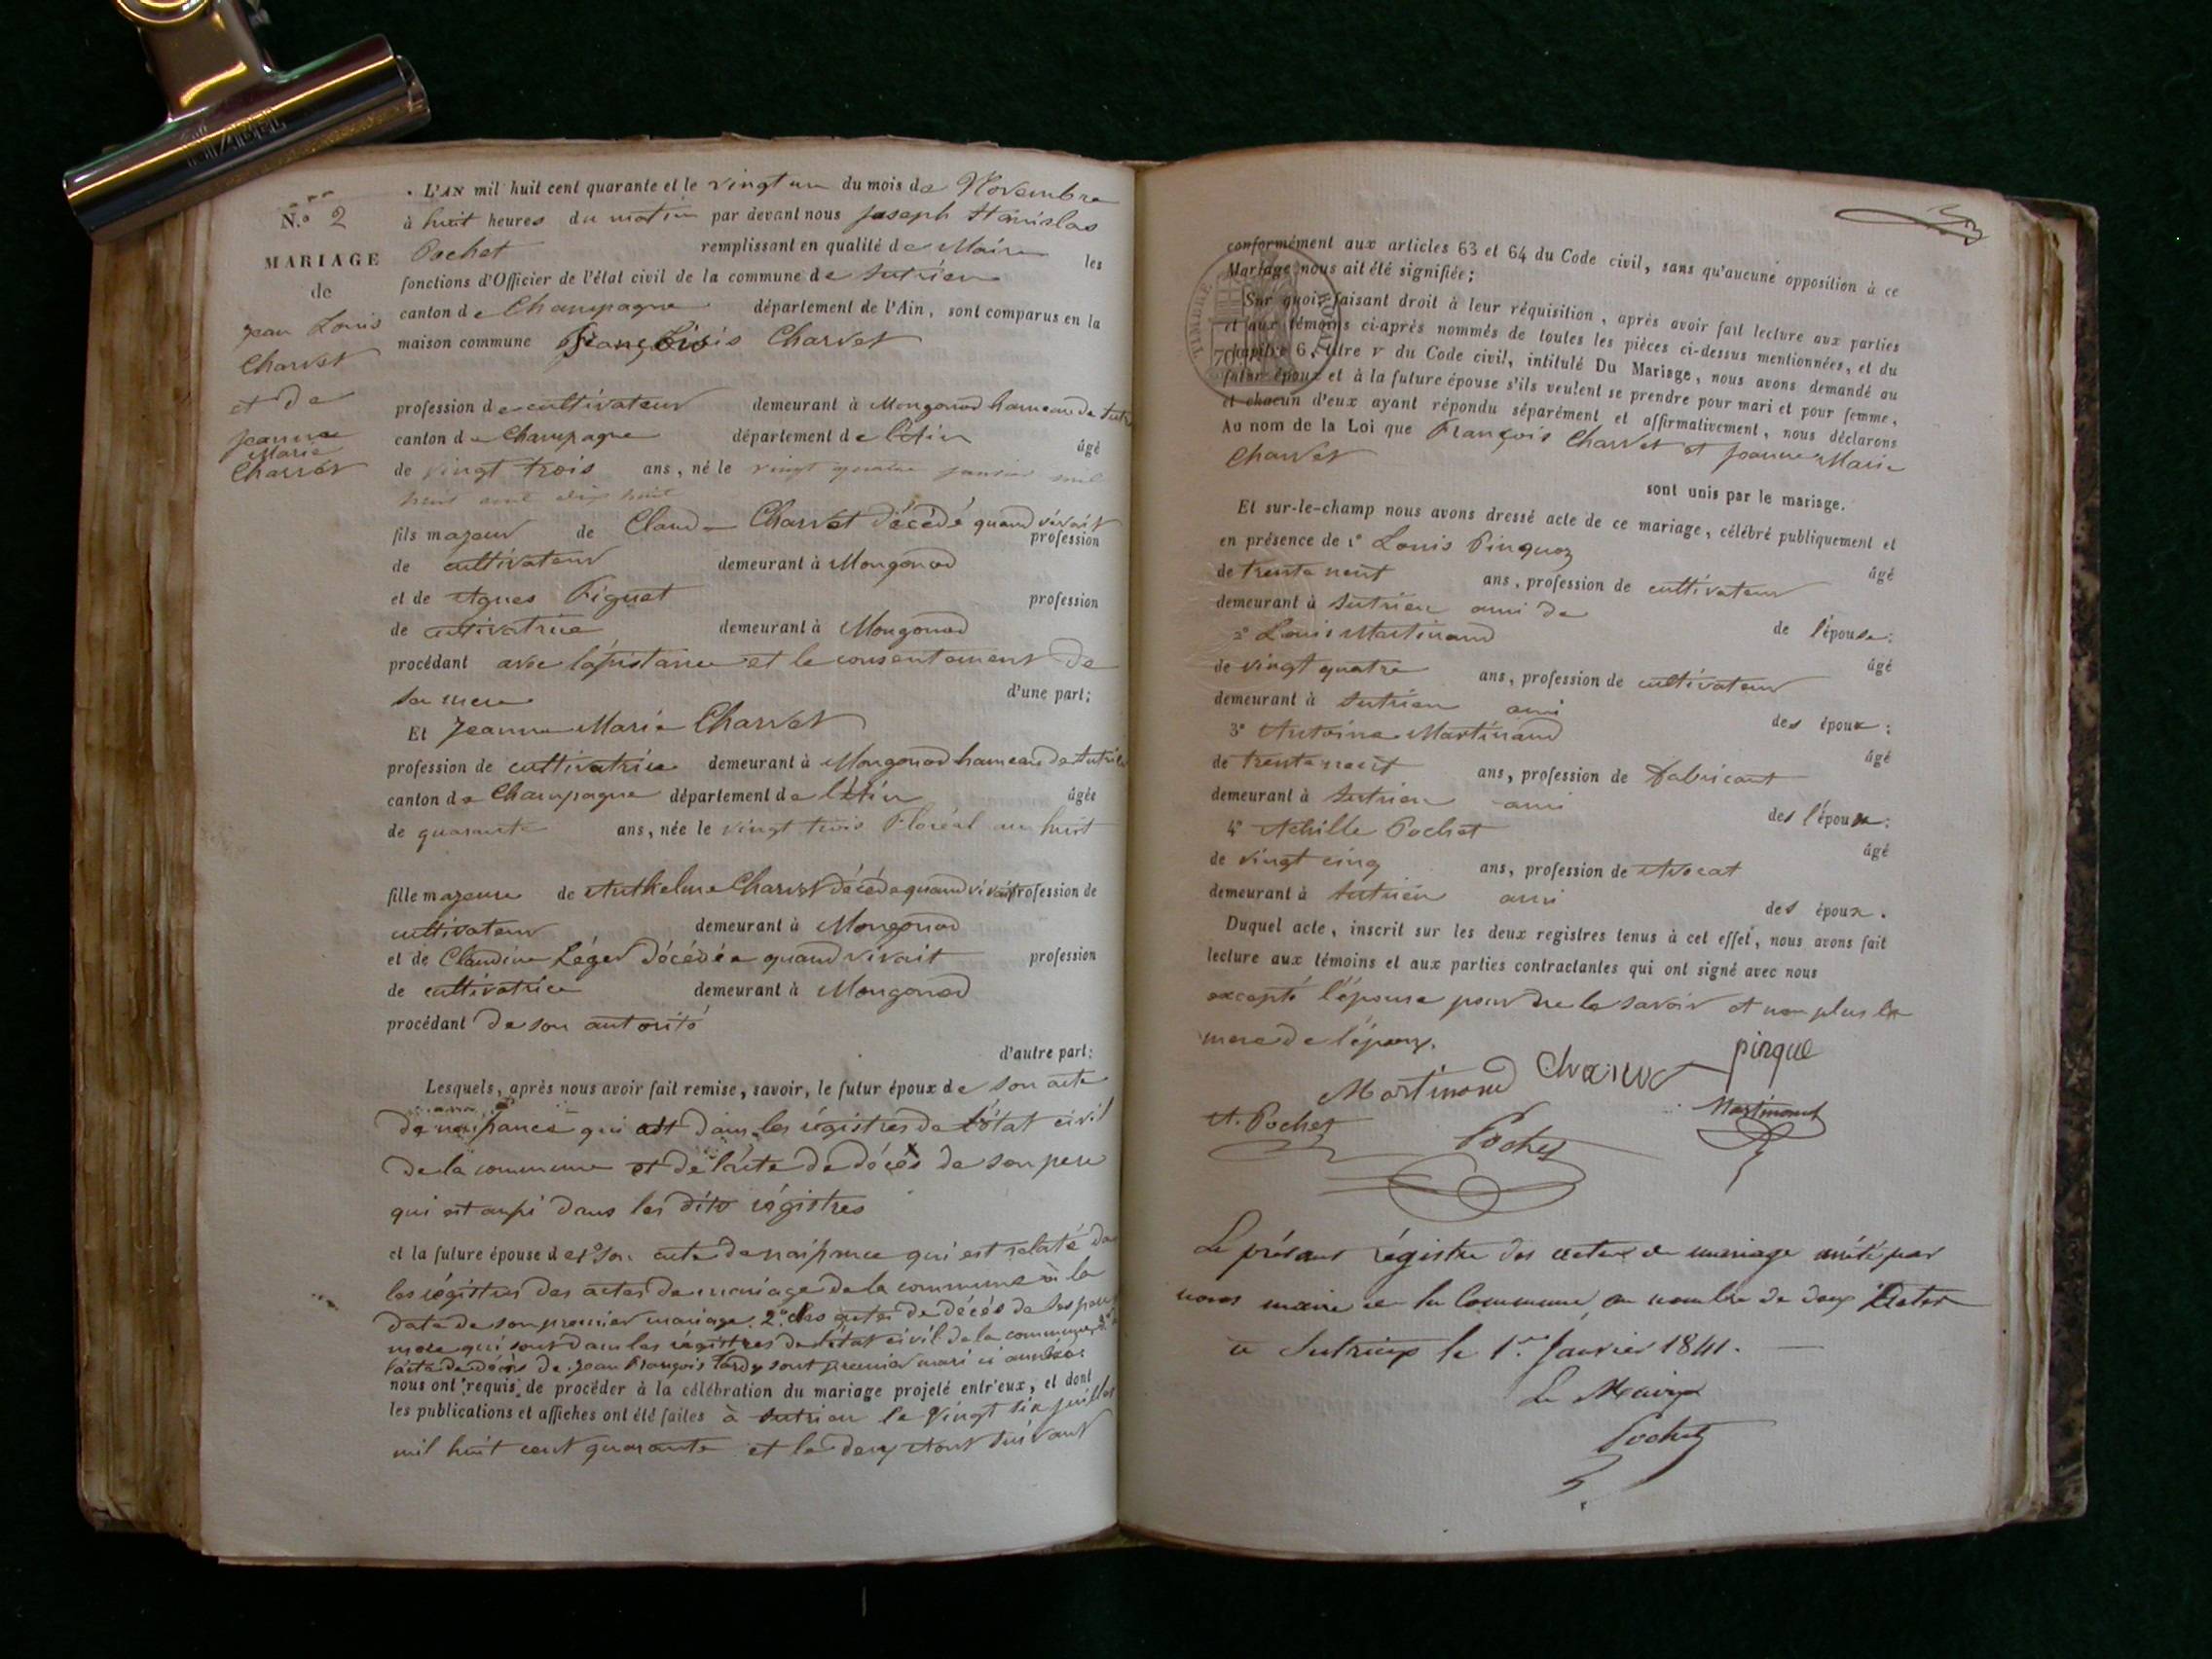 N.o 2
MARIAGE
de
Jean Louis
Charvet
et de
Jeanne
Marie
Charvet
L'AN mil huit cent quarante et le vingt un du mois de Novembre
à huit heures du matin par devant nous Joseph Stanislas
Pochet remplissant en qualité de Maire les
fonctions d'Officier de l'état civil de la commune de Sutrieu
canton de Champagne département de l'Ain, sont comparus en la
maison commune François Charvet
profession de cultivateur demeurant à Mongonod hameau de Sutrieu
canton de Champagne département de l'Ain âgé
de vingt trois ans, né le vingt quatre janvier mil
huit cent dix huit
fils majeur de Claude Charvet décédé quand vivait profession
de cultivateur demeurant à Mongonod
et de Agnes Piguet profession
de cultivatrice demeurant à Mongonod
procédant avec lapistance et le consentement de
sa mere d'une part;
Et Jeanne Marie Charvet
profession de cultivatrice demeurant à Mongonod hameau de Sutrieu
canton de Champagne département de l'Ain âgée
de quarante ans, née le vingt trois Floréal an huit
fille majeure de Anthelme Charvet décédé quand vivait profession de
cultivateur demeurant à Mongonod
et de Claudine Léger décédée quand vivait profession
de cultivatrice demeurant à Mongonod
procédant de son autorité
d'autre part;
Lesquels, après nous avoir fait remise, savoir, le futur époux de son acte
de naissance qui est dans les régistres de l'état civil
de la commune et de l'acte de décès de son pere
qui est aussi dans les dits régistres
et la future épouse de 1° son acte de naissance qui est relaté dans
les régistres des actes de mariage de la commune à la
date de son premier mariage. 2° des actes de décés de ses pere
mere qui sont dans les régistres de l'état civil de la commune 3°
l'acte de décès de Jean François Tardy sont premier mari ci annexée
nous ont requis de procéder à la célébration du mariage projeté entr'eux, et dont
les publications et affiches ont été faites à Sutrieu le vingt six juillet
mil huit cent quarante et le deux Aout suivant
conformément aux articles 63 et 64 du Code civil, sans qu'aucune opposition à ce
Mariage nous ait été signifiée;
Sur quoi, faisant droit à leur réquisition, après avoir fait lecture aux parties
et aux témoins ci-après nommés de toutes les pièces ci-dessus mentionnées, et du
chapitre 6, titre v du Code civil, intitulé Du Mariage, nous avons demandé au
futur époux et à la future épouse s'ils veulent se prendre pour mari et pour femme,
et chacun d'eux ayant répondu séparément et affirmativement, nous déclarons
Au nom de la Loi que François Charvet et Jeanne Marie
Charvet
sont unis par le mariage.
Et sur-le-champ nous avons dressé acte de ce mariage, célébré publiquement et
en présence de 1° Louis Pinquoz âgé
de trente neuf ans, profession de cultivateur
demeurant à Sutrieu ami de de l'épouse;
2° Louis Martinand âgé
de vingt quatre ans, profession de cultivateur
demeurant à Sutrieu ami des époux;
3° Antoine Martinand âgé
de trente neuf ans, profession de fabricant
demeurant à Sutrieu ami des l'époux;
4° Achille Pochet âgé
de vingt cinq ans, profession de Avocat
demeurant à Sutrieu ami des époux.
Duquel acte, inscrit sur les deux registres tenus à cet effet, nous avons fait
lecture aux témoins et aux parties contractantes qui ont signé avec nous
excepté l'épouse pour ne le savoir et non plus la
mere de l'époux.
Martinand Charvet pinque
A. Pochet Pochet Martinand
Le présent régistre des actes de mariage arrêté par
nous maire de la Commune au nombre de deux Actes
à Sutrieux le 1.er Janvier 1841.
Le Maire
Pochet
TIMBRE ROYAL